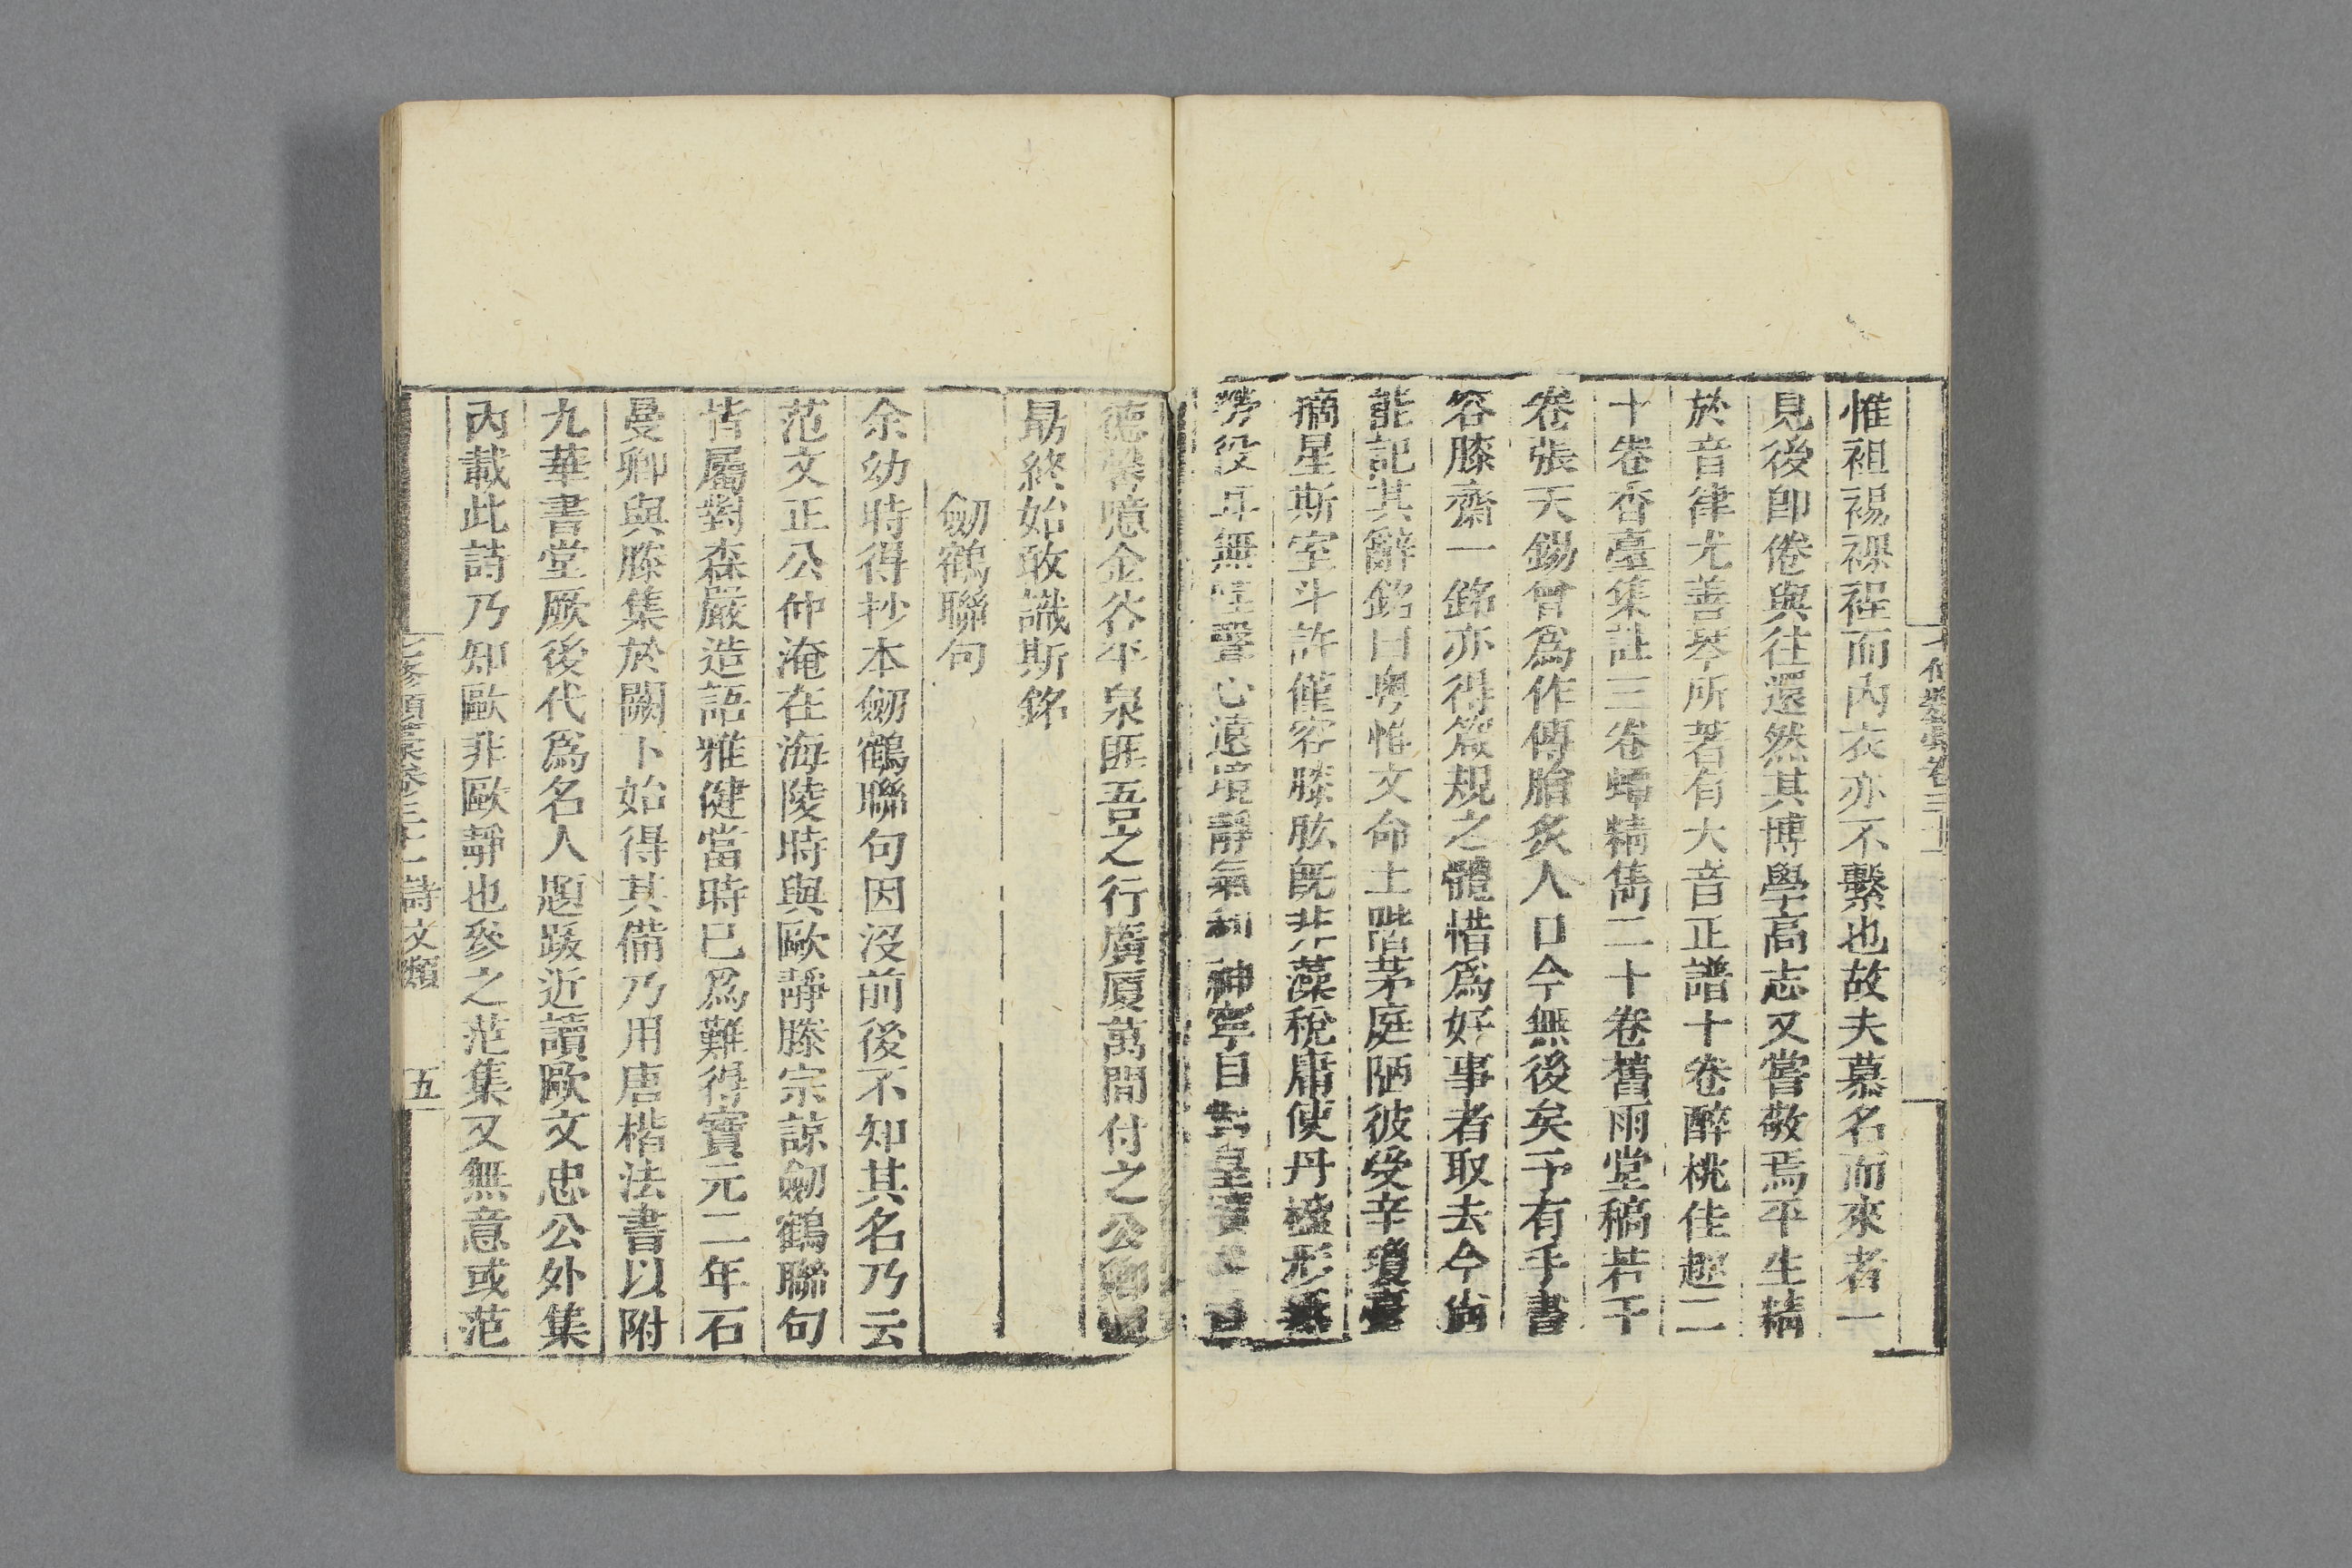 惟袒裼裸裎而內衣亦不繫也故夫慕名而來者一
見後卽倦與往還然其博學高志又嘗敬焉平生精
於音律尤善琴所著有大音正譜十卷醉桃佳趣二
十卷香臺集註三卷蟫精雋二十卷舊雨堂稿若干
卷張天錫曾爲作傳膾炙人口今無後矣予有手書
容膝齋一銘亦得箴規之體惜爲好事者取去今尚
能記其辭銘曰粵惟文命土階茅庭陋彼受辛瓊臺
摘星斯室斗許僅容膝肱旣非藻梲庸使丹楹形無
勞役耳無哇聲心遠境靜氣和神寧目對皇
德馨噫金谷平泉匪吾之行廣廈萬間付之公卿
勗終始敢識斯銘
劒鶴聯句
余幼時得抄本劒鶴聯句因沒前後不知其名乃云
范文正公仲淹在海陵時與歐靜滕宗諒劒鶴聯句
皆屬對森嚴造語雅健當時已爲難得寶元二年石
曼卿與滕集於闕下始得其備乃用唐楷法書以附
九華書堂厥後代爲名人題跋近讀歐文忠公外集
內載此詩乃知歐非歐靜也參之范集又無意或范
七修類藁卷三十一 詩文類 五